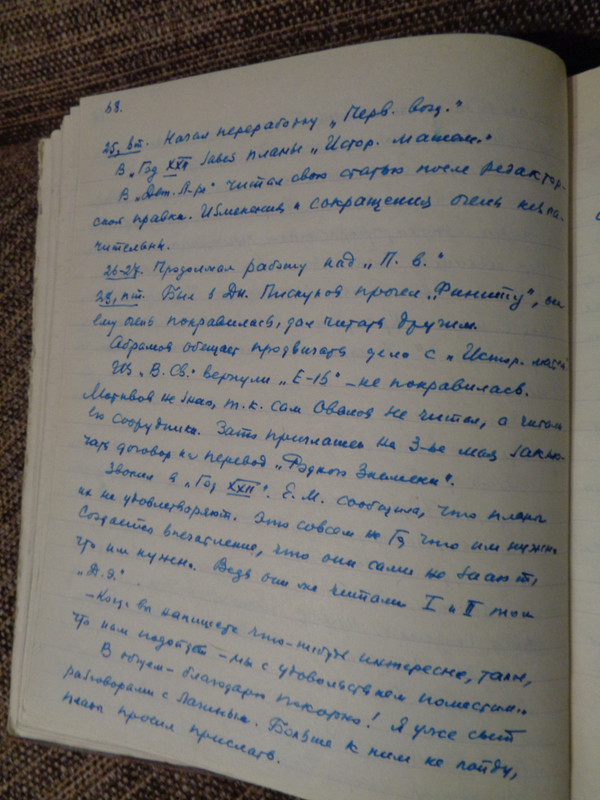 68.
25, вт. Начал переработку „Перв. возд."
В „Год XXII завез планы „Истор. маяком."
В „Дет. Л-ре" читал свою статью после редактор-
ской правки. Изменения и сокращения очень незна-
чительны.
26-27. Продолжал работу над „П. в."
28, пт. Был в Дн. Пискунов прочел „Финиту", он
ему очень понравилась, дал читать другим.
Абрамов обещает продвигать дело с „Истор. мая
Из „В. Св." вернули „Е-15" – не понравилась.
Мотивов не знаю, т. к. сам Овалов не читал, а читали
его сотрудники. Зато приглашен на 3-ье мая заклю-
чать договор на перевод „Родного Знамени".
Звонил в „Год XXII". Е. М. сообщила, что планы
их не удовлетворяют. Это совсем не то, что им нужно.
Создается впечатление, что они сами не знают,
что им нужно. Ведь они же читали I и II
„Д. Э."
– Когда вы напишете что-нибудь интересное, такое,
что нам подойдет – мы с удовольствием поместим..
В общем – благодарю покорно! Я уже сыт
разговорами с Лагиным. Больше к ним не пойду,
планы просил прислать.